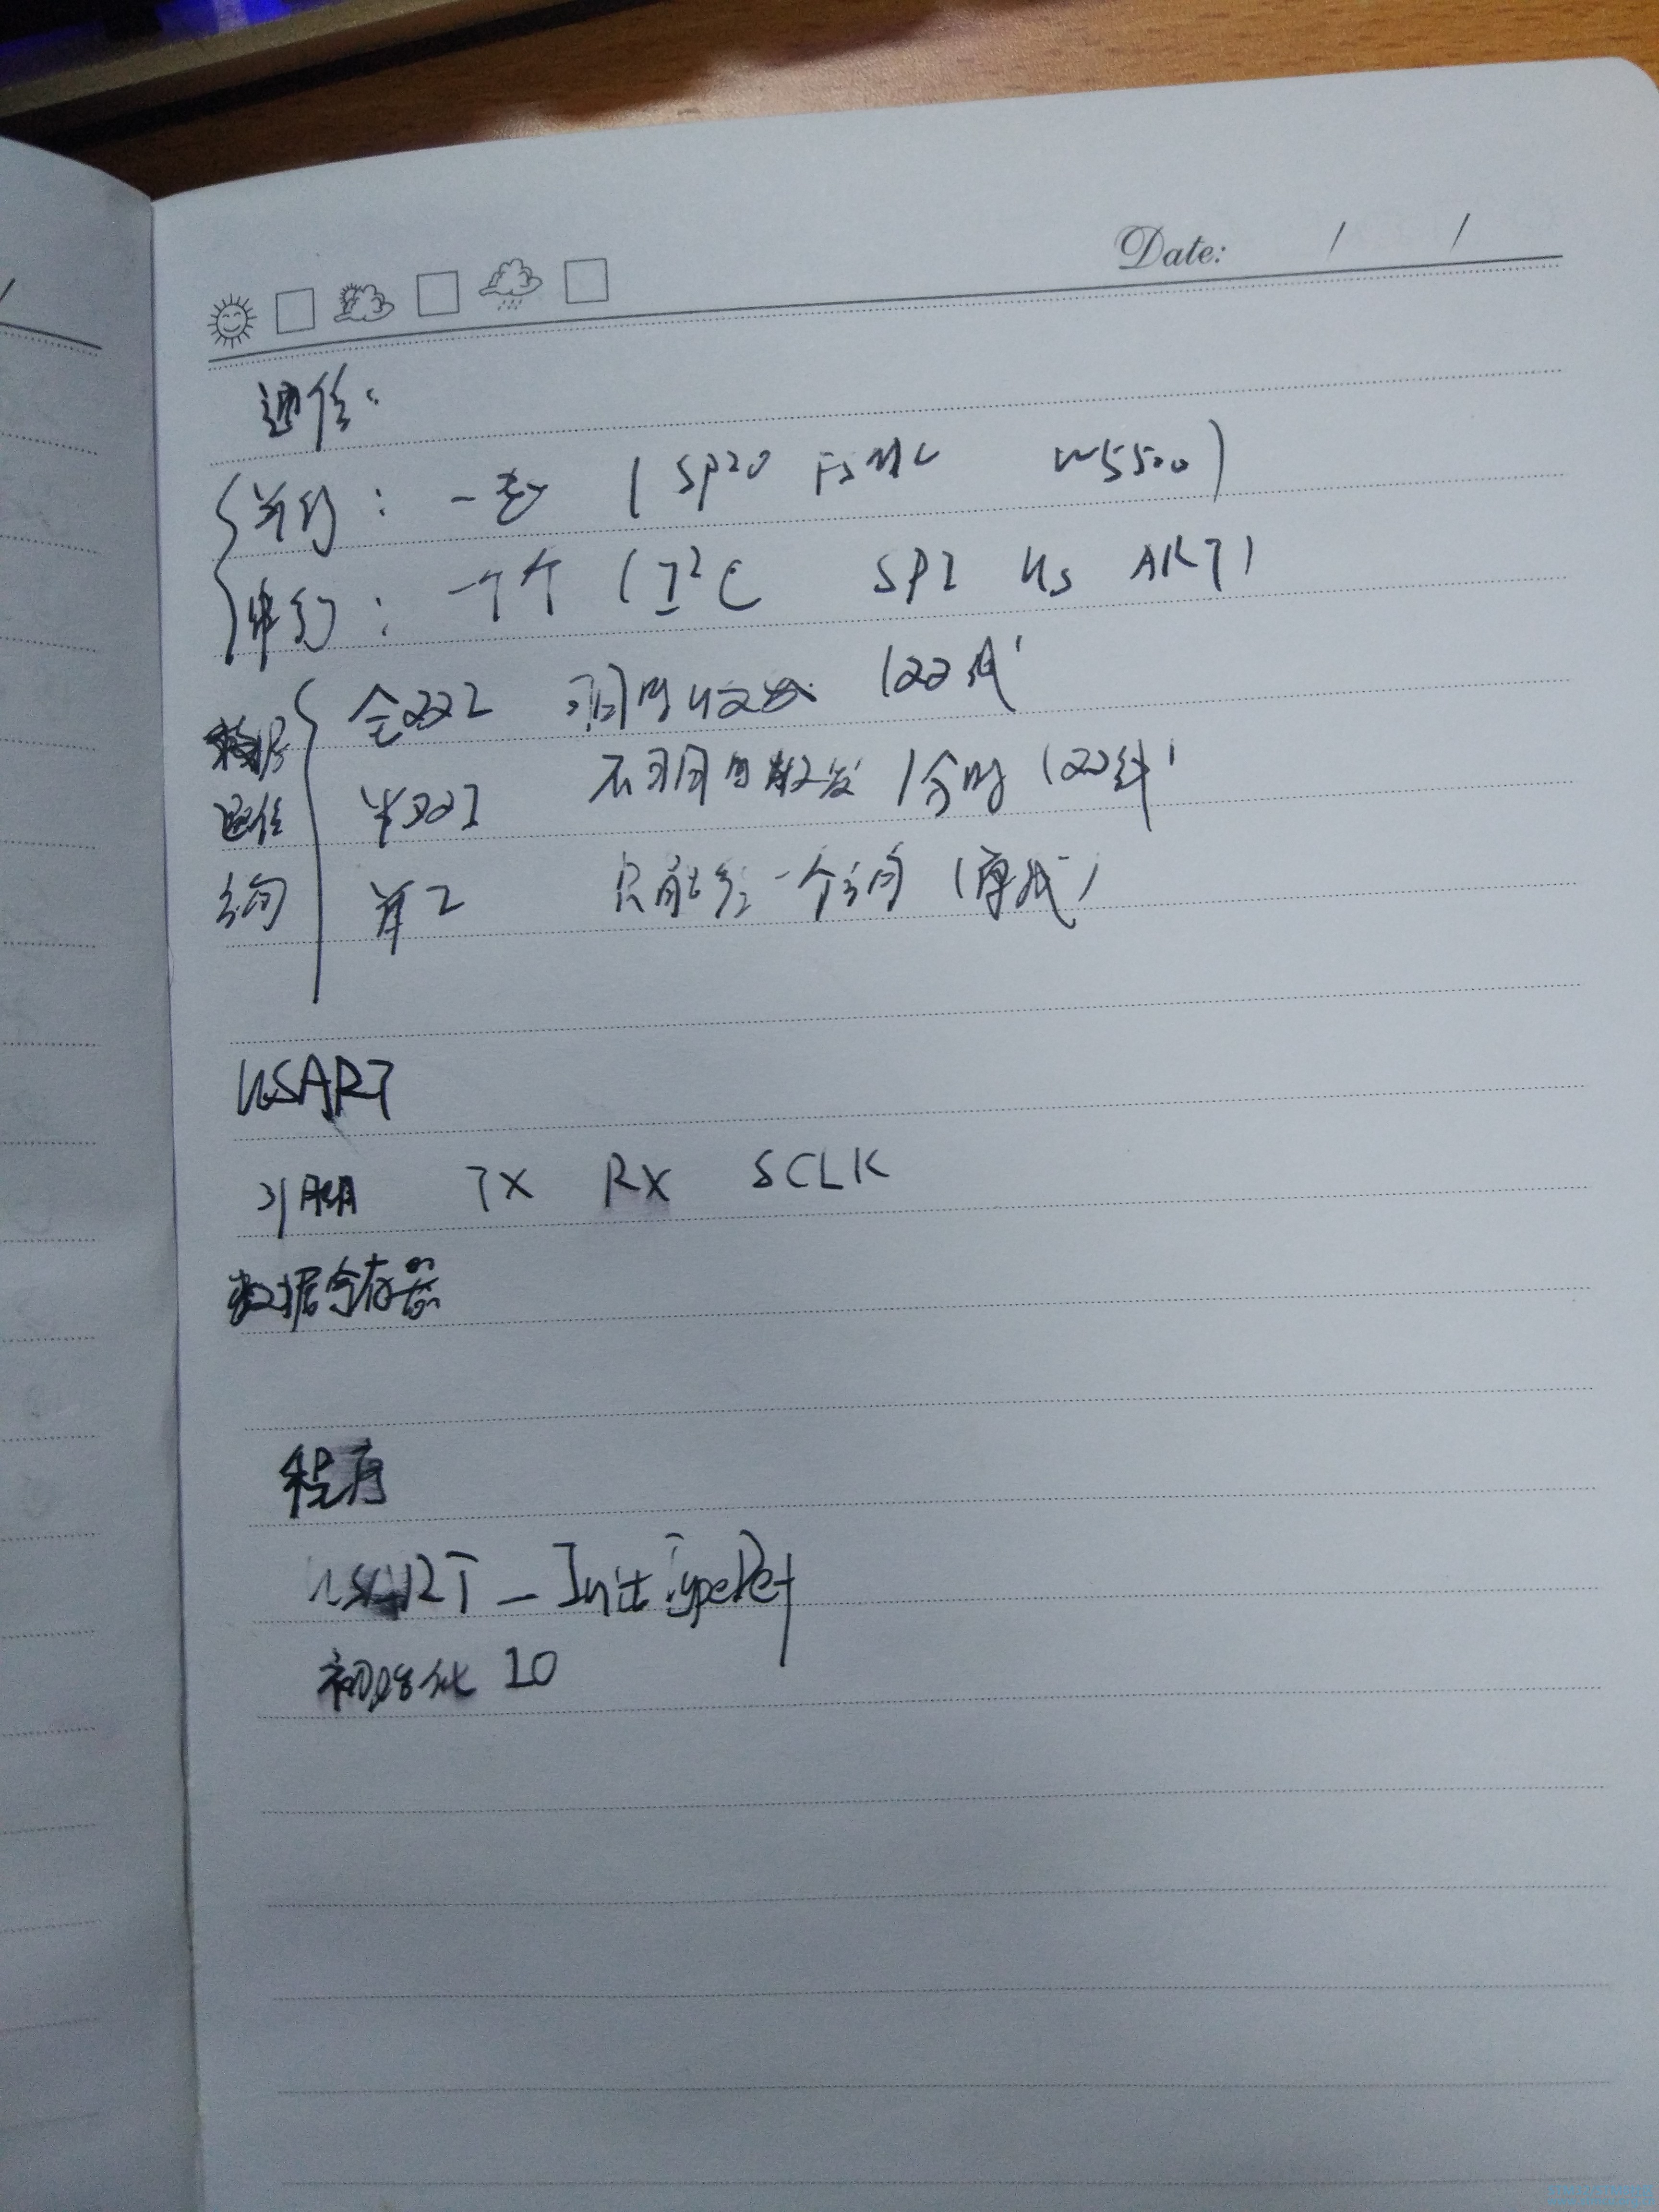 Date: / /
通信:
并行: 一起 (SP20 FSMC W5500)
串行: 一个个 (I²C SPI USART)
数据通信方向
全双工 可同时收发 (双线)
半双工 不可同时收发 (分时) (双线)
单工 只能往一个方向 (单线)
USART
引脚 TX RX SCLK
数据寄存器
程序
USART_InitTypeDef
初始化 IO